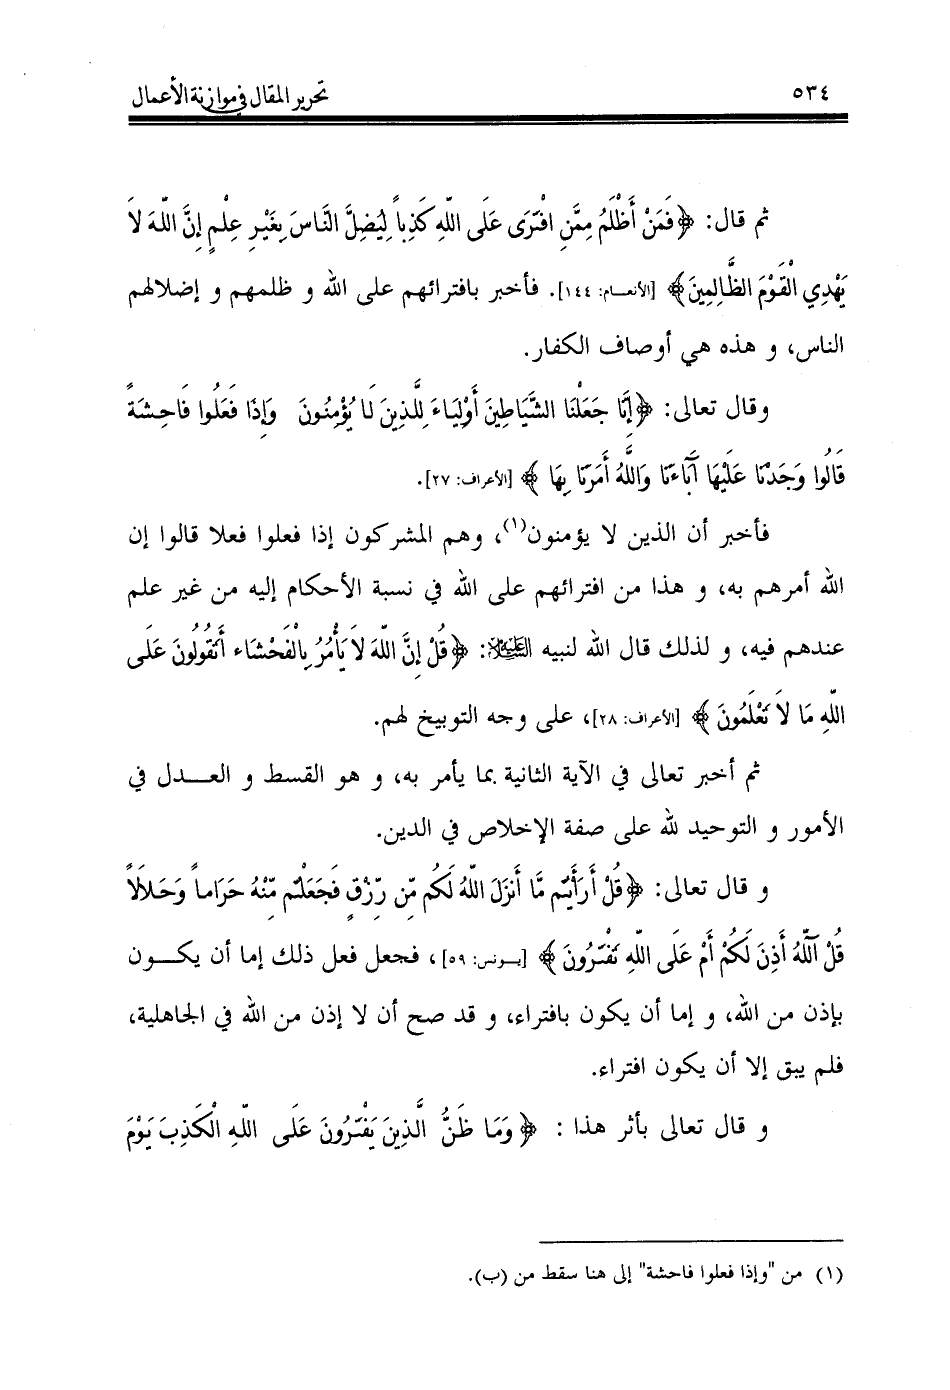 ٥٣٤ تحرير المقال في موازنة الأعمال
ثم قال: ﴿فَمَنْ أَظْلَمُ مِمَّنِ افْتَرَى عَلَى اللّهِ كَذِباً لِيُضِلَّ النَّاسَ بِغَيْرِ عِلْمٍ إِنَّ اللّهَ لاَ
يَهْدِي الْقَوْمَ الظَّالِمِينَ﴾ [الأنعام: ١٤٤]. فأخبر بافترائهم على الله و ظلمهم و إضلالهم
الناس، و هذه هي أوصاف الكفار.
وقال تعالى: ﴿إِنَّا جَعَلْنَا الشَّيَاطِينَ أَوْلِيَاءَ لِلَّذِينَ لَا يُؤْمِنُونَ وَإِذَا فَعَلُوا فَاحِشَةً
قَالُوا وَجَدْنَا عَلَيْهَا آبَاءَنَا وَاللَّهُ أَمَرَنَا بِهَا ﴾ [الأعراف: ٢٧].
فأخبر أن الذين لا يؤمنون(١)، وهم المشركون إذا فعلوا فعلا قالوا إن
الله أمرهم به، و هذا من افترائهم على الله في نسبة الأحكام إليه من غير علم
عندهم فيه، و لذلك قال الله لنبيه عليه السلام: ﴿قُلْ إِنَّ اللّهَ لاَ يَأْمُرُ بِالْفَحْشَاء أَتَقُولُونَ عَلَى
اللّهِ مَا لاَ تَعْلَمُونَ ﴾ [الأعراف: ٢٨]، على وجه التوبيخ لهم.
ثم أخبر تعالى في الآية الثانية بما يأمر به، و هو القسط و العدل في
الأمور و التوحيد لله على صفة الإخلاص في الدين.
و قال تعالى: ﴿قُلْ أَرَأَيْتُم مَّا أَنزَلَ اللّهُ لَكُم مِّن رِّزْقٍ فَجَعَلْتُم مِّنْهُ حَرَاماً وَحَلاَلاً
قُلْ آللّهُ أَذِنَ لَكُمْ أَمْ عَلَى اللّهِ تَفْتَرُونَ ﴾ [يونس: ٥٩]، فجعل فعل ذلك إما أن يكون
بإذن من الله، و إما أن يكون بافتراء، و قد صح أن لا إذن من الله في الجاهلية،
فلم يبق إلا أن يكون افتراء.
و قال تعالى بأثر هذا : ﴿ وَمَا ظَنُّ الَّذِينَ يَفْتَرُونَ عَلَى اللّهِ الْكَذِبَ يَوْمَ
(١) من "وإذا فعلوا فاحشة" إلى هنا سقط من (ب).